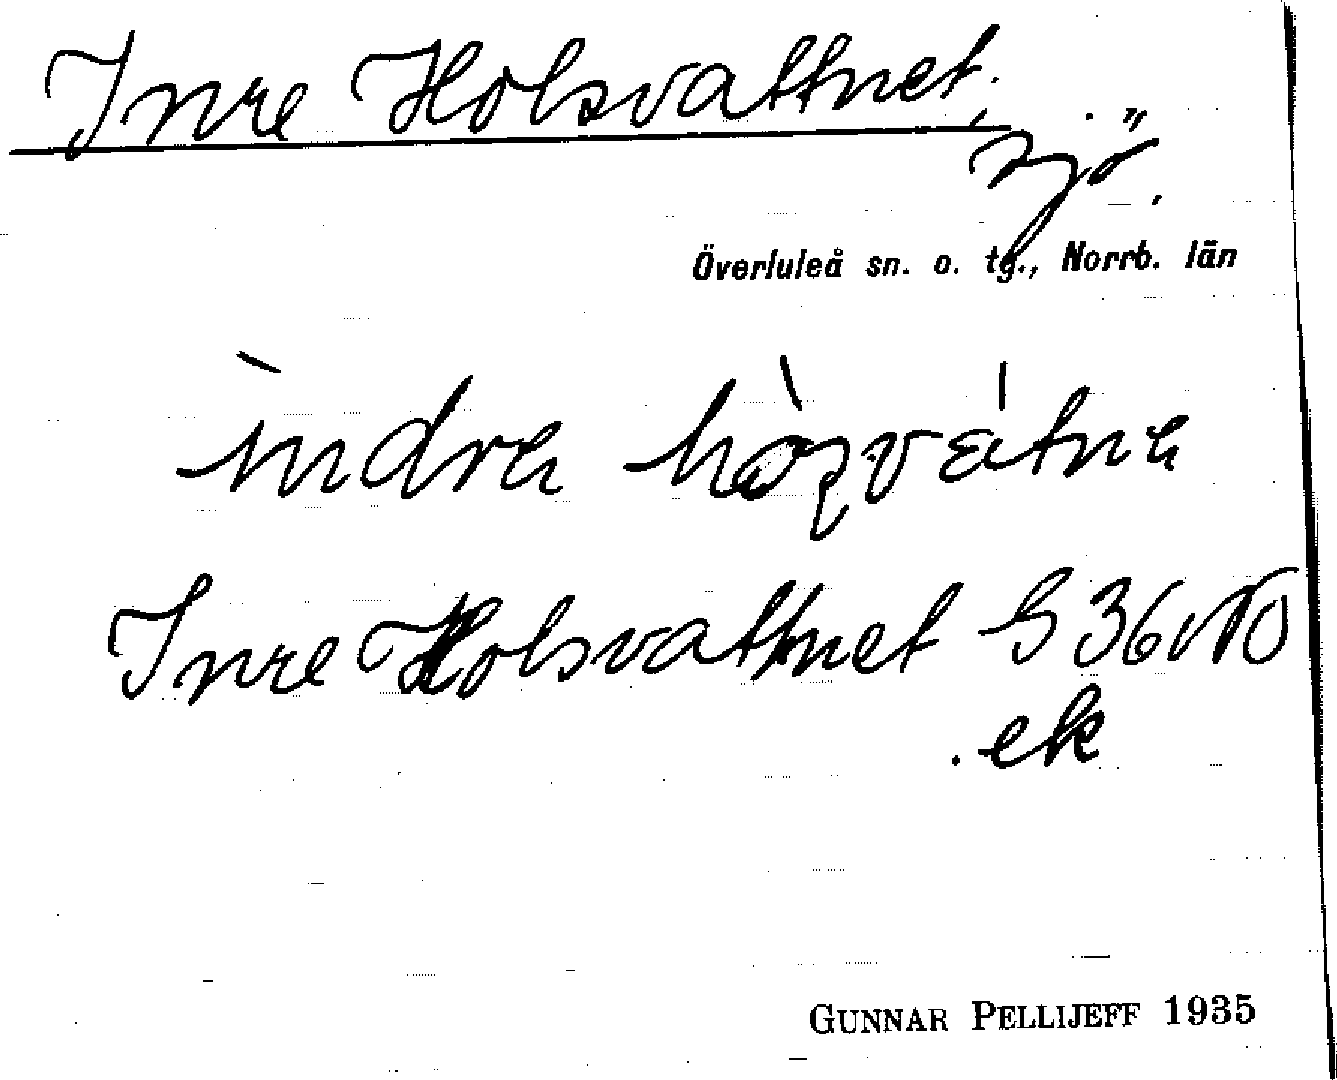 Inre Holsvattnet,
sjö.
Överluleå sn. o. tg., Norrb. län
Inre Holsvattnet S 36 NO
ek
GUNNAR PELLIJEFF 1935